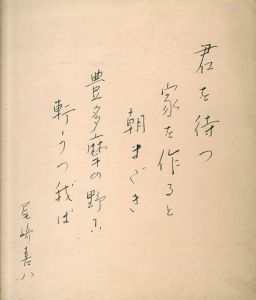 君を待つ
家を作ると
朝まだき
豊多摩の野に
斬うつ我ば
尾崎喜八